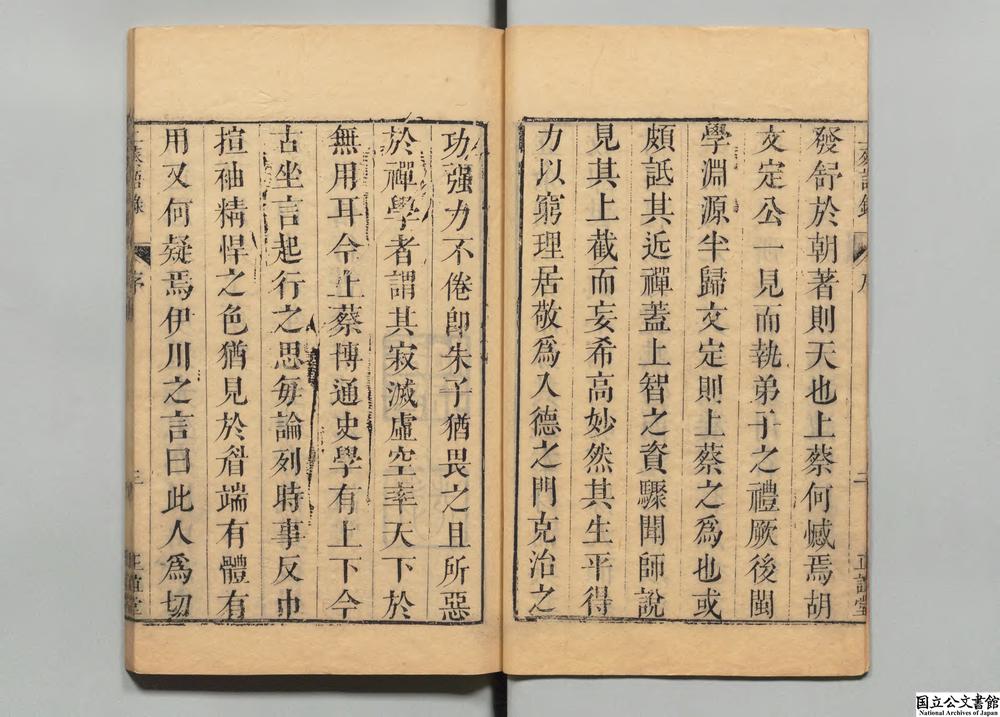 發舒於朝著則天也上蔡何憾焉胡
文定公一見而執弟子之禮厥後閩
學淵源半歸文定則上蔡之爲也或
頗詆其近禪蓋上智之資驟聞師說
見其上截而妄希高妙然其生平得
力以窮理居敬爲入德之門克治之
二
正誼堂
功强力不倦卽朱子猶畏之且所惡
於禪學者謂其寂滅虛空率天下於
無用耳今上蔡博通史學有上下今
古坐言起行之思每論列時事反巾
揎袖精悍之色猶見於眉端有體有
用又何疑焉伊川之言曰此人爲切
上蔡語錄
序
三
正誼堂
国立公文書館
National Archives of Japan